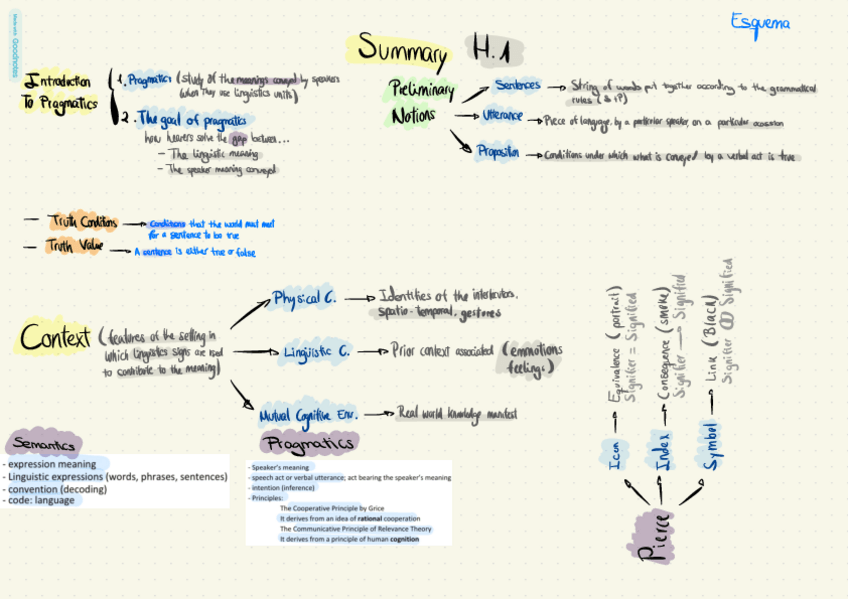 Made with Goodnotes
Esquema
Summary H.1
Introduction
To Pragmatics
1. Pragmatics (study of the meanings conveyed by speakers
when they use linguistics units)
2. The goal of pragmatics
how hearers solve the gap between...
- The linguistic meaning
- The speaker meaning conveyed
Preliminary
Notions
Sentences → String of words put together according to the grammatical
rules
Utterance → Piece of language, by a particular speaker, on a particular occasion
Proposition → Conditions under which what is conveyed by a verbal act is true
- Truth Conditions → Conditions that the world must met
for a sentence to be true
- Truth Value → A sentence is either true or false
Context (features of the setting in
which linguistics signs are used
to contribute to the meaning)
Physical C. → Identities of the interlocutors,
spatio-temporal, gestures
Linguistic C. → Prior context associated (emmotions
feelings)
Mutual Cognitive Env. → Real world knowledge manifest
Semantics
- expression meaning
- Linguistic expressions (words, phrases, sentences)
- convention (decoding)
- code: language
Pragmatics
- Speaker's meaning
- speech act or verbal utterance; act bearing the speaker's meaning
- intention (inference)
- Principles:
The Cooperative Principle by Grice
It derives from an idea of rational cooperation
The Communicative Principle of Relevance Theory
It derives from a principle of human cognition
Pierce
Icon → Equivalence (portrait)
Signifier = Signified
Index → Consequence (smoke)
Signifier → Signified
Symbol → Link (Black)
Signifier Signified